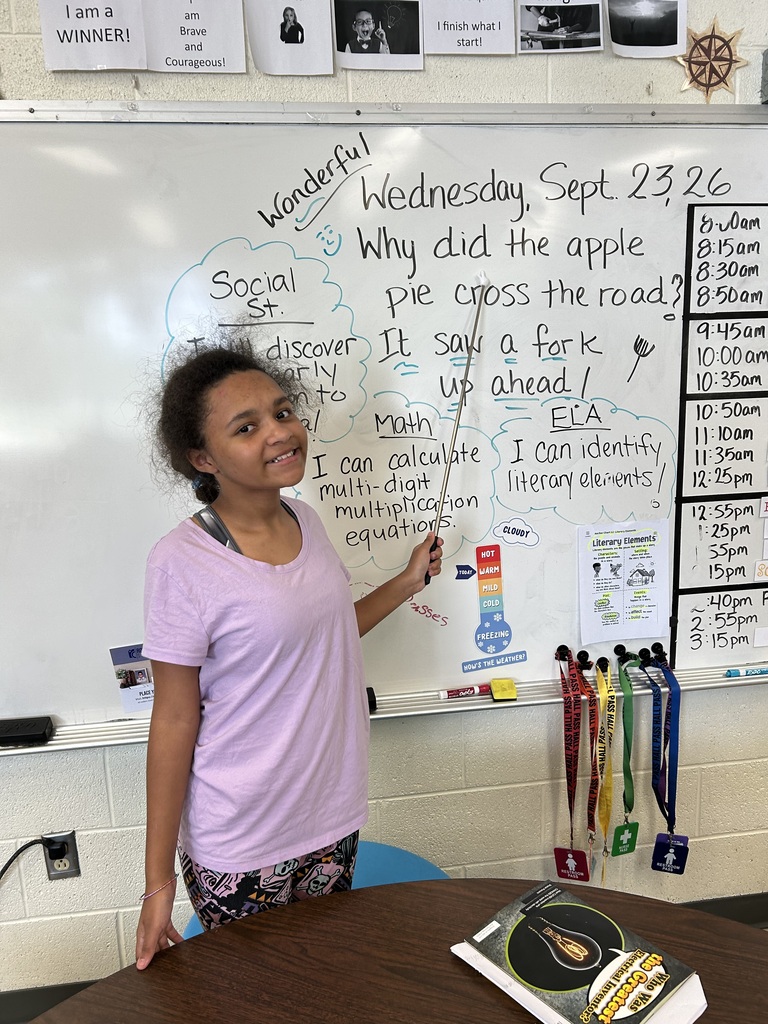 I am a
WINNER!
I
am
Brave
and
Courageous!
I finish what I
start!
Wonderful
Wednesday, Sept. 23, 26
Why did the apple
pie cross the road?
It saw a fork
up ahead!
Social
St.
discover
Math
I can calculate
multi-digit
multiplication
equations.
ELA
I can identify
literary elements!
8:15am
8:30am
8:50am
9:45am
10:00am
10:35am
10:50am
11:10am
11:35am
12:25pm
12:55pm
1:25pm
55pm
15pm
:40pm
2:55pm
3:15pm
CLOUDY
HOT
TODAY
WARM
MILD
COLD
FREEZING
HOW'S THE WEATHER?
Literary Elements
HALL PASS HALL PASS
RESTROOM
PASS
RESTROOM
PASS
Who Was
the Greatest
Electrical Inventor?